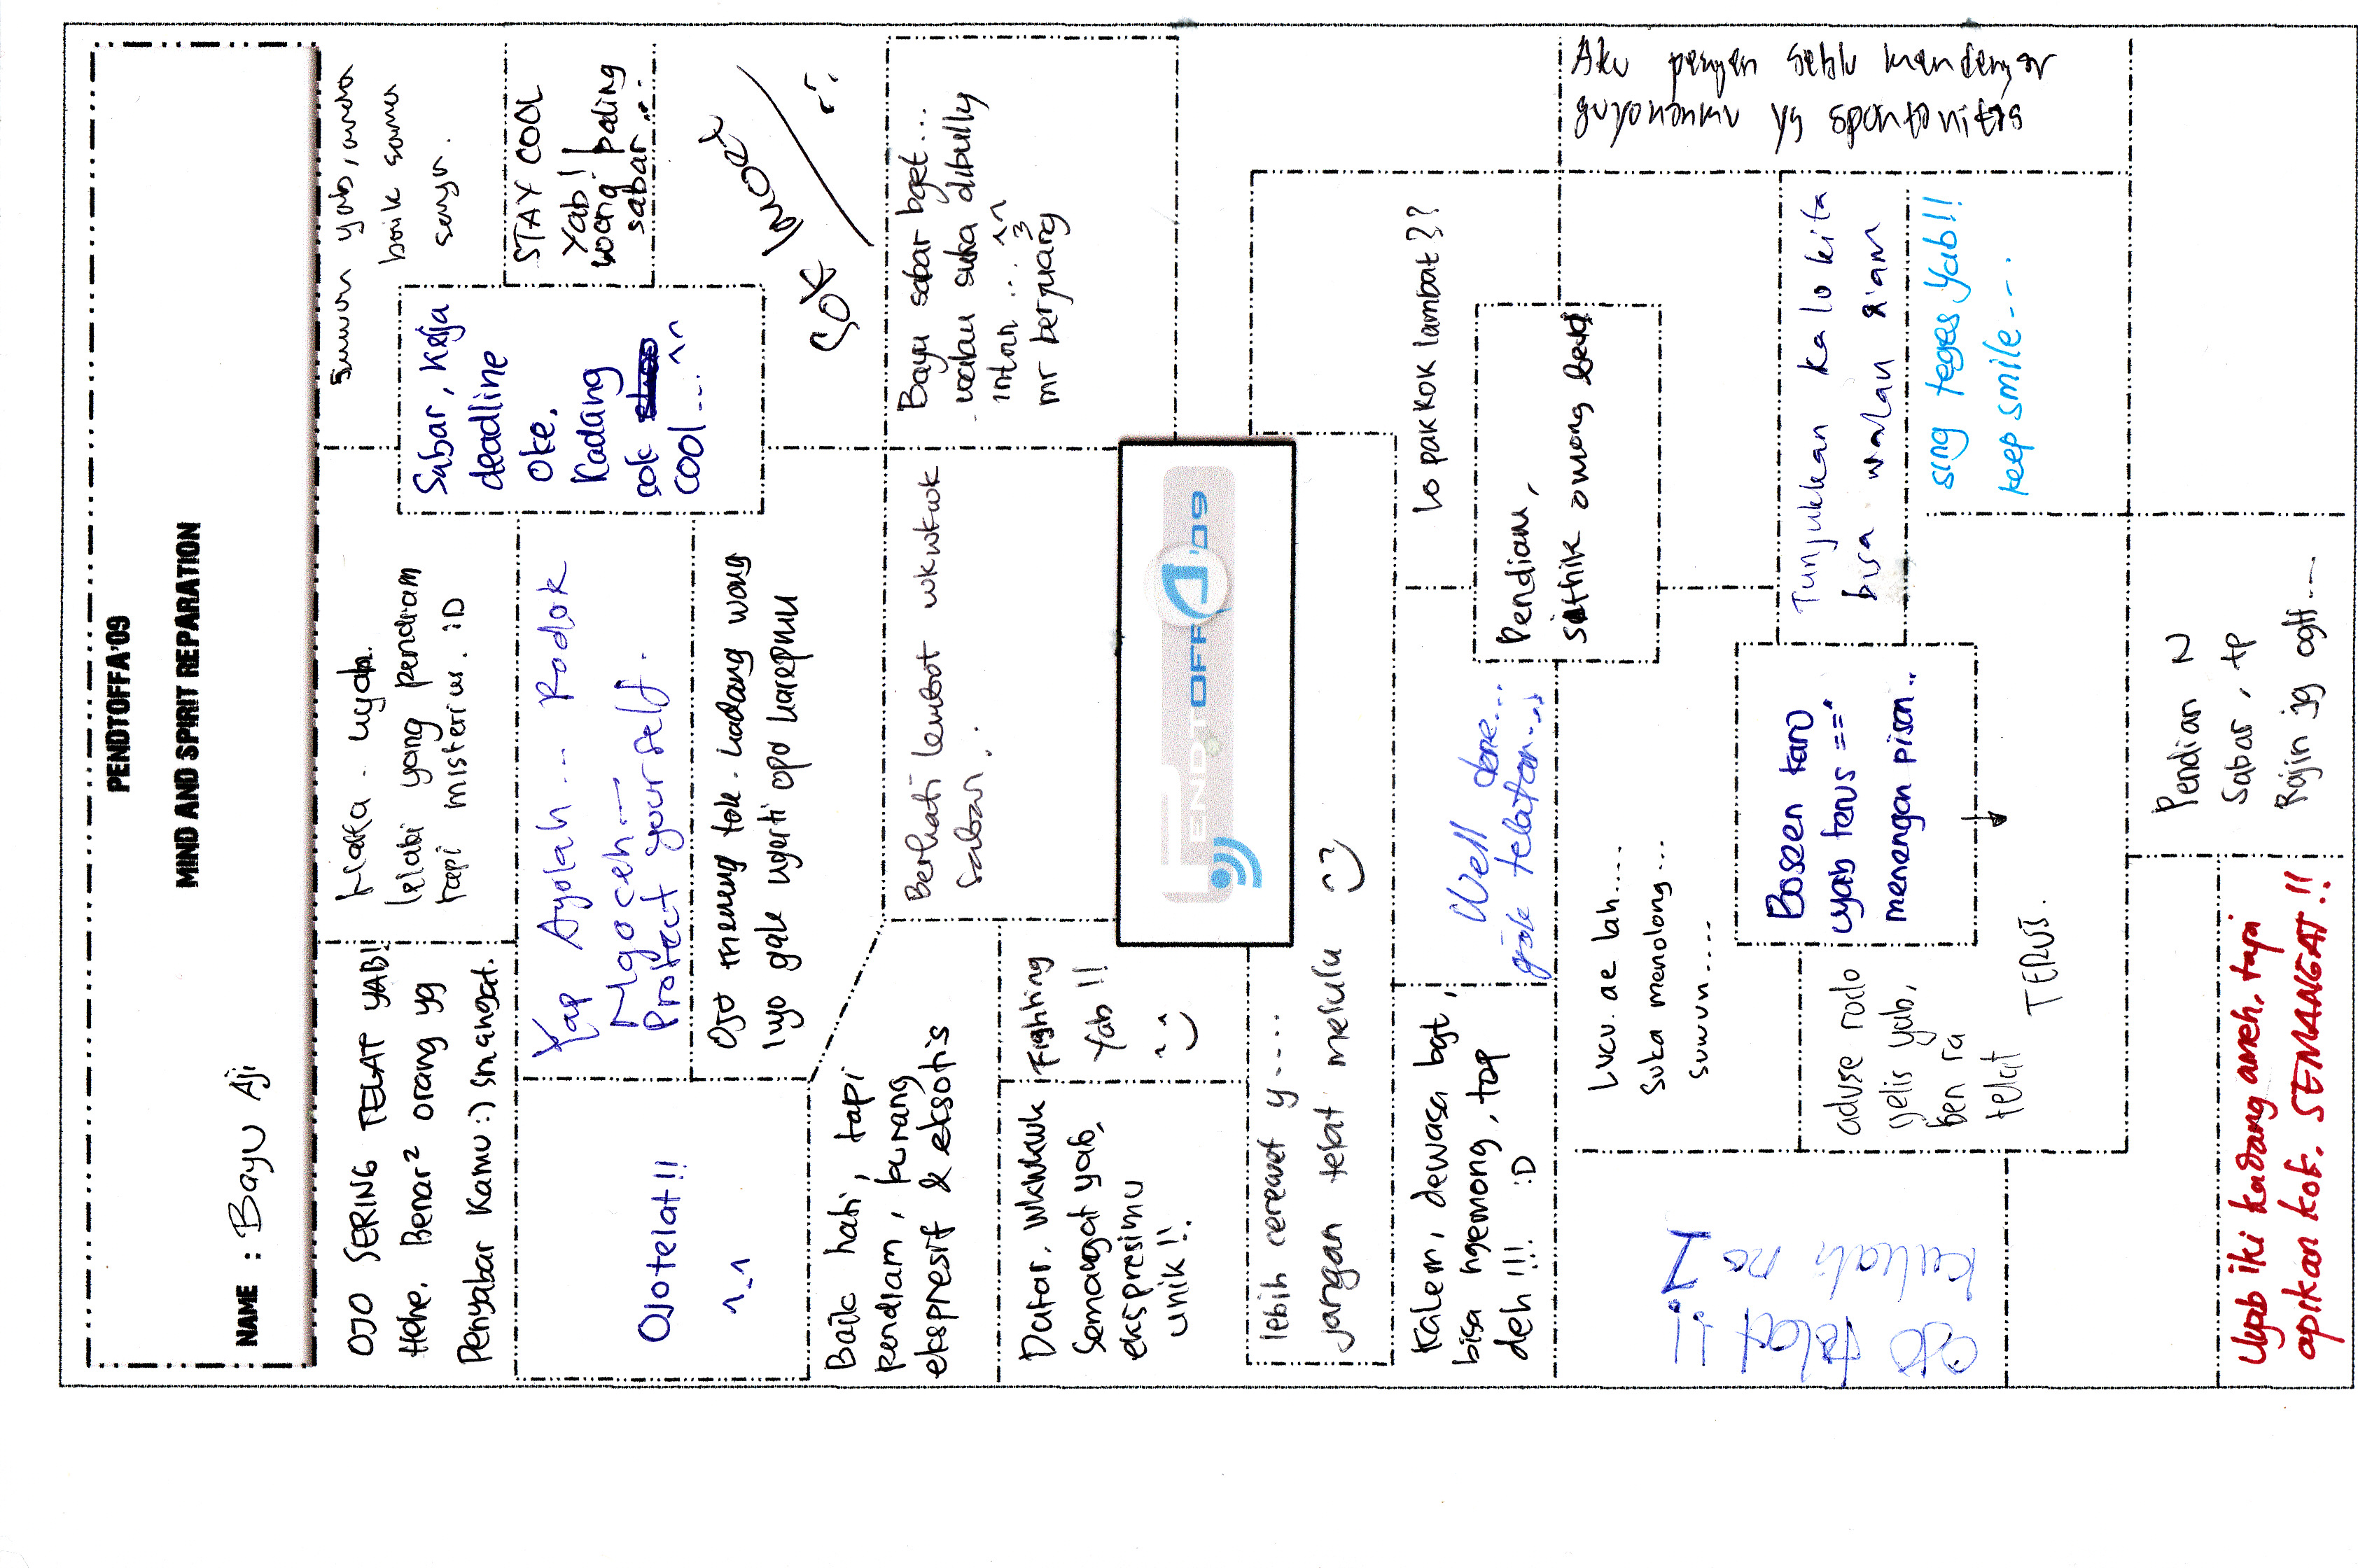 PENDTOFFA'09
MIND AND SPIRIT REPARATION
NAME : Bayu Aji
OJO SERING TELAT YAB!!
Hehe. Benar² orang yg
Penyabar Kamu :) smangat.
uyab.
lelaki yang pendiam
tapi misterius. :D
Suwun yab, anda
baik sama
saya.
Sabar, kerja
deadline
oke.
Kadang
sok
cool... ^^
STAY COOL
Yab!!
wong paling
sabar...
Ojo telat!!
^_^
Yap Ayolah... Rodok
Ngoceh...
Protect yourself.
Ojo meneng tok. kadang wong
liyo gak ngerti opo karepmu
Sok imoet
Baik hati, tapi
pendiam, kurang
ekspresif & eksotis
Berhati lembot wkwkwk
sabar..
Bayu sabar bget...
walau suka dibully
intan ... ^^
mr berjuang
Datar. wkwkwk
Semangat yab,
ekspresimu
unik!!
Fighting
Yab!!
PENDTOFFA'09
lebih cerewet y....
jangan telat melulu
Kalem, dewasa bgt,
bisa ngemong, top
deh!!! :D
Well done...
gak telatan...
Lo pak kok lambat??
Pendiam,
sithik omong
Ojo telat!!!
kuliah no 1
Lucu ae lah....
Suka menolong...
suwun....
Boseen karo
uyab terus ==*
menengan pisan..
TERUS.
aduse rodo
gelis yab,
ben ra
telat
Tunjukkan kalo kita
bisa walau diam
sing teges Yab!!
keep smile...
Aku pengen selalu mendengar
guyonanmu yg spontanitas
Uyab iki kadang aneh, tapi
apikan kok. SEMANGAT!!
Pendian N
Sabar, tp
Rajin jg ogtt...